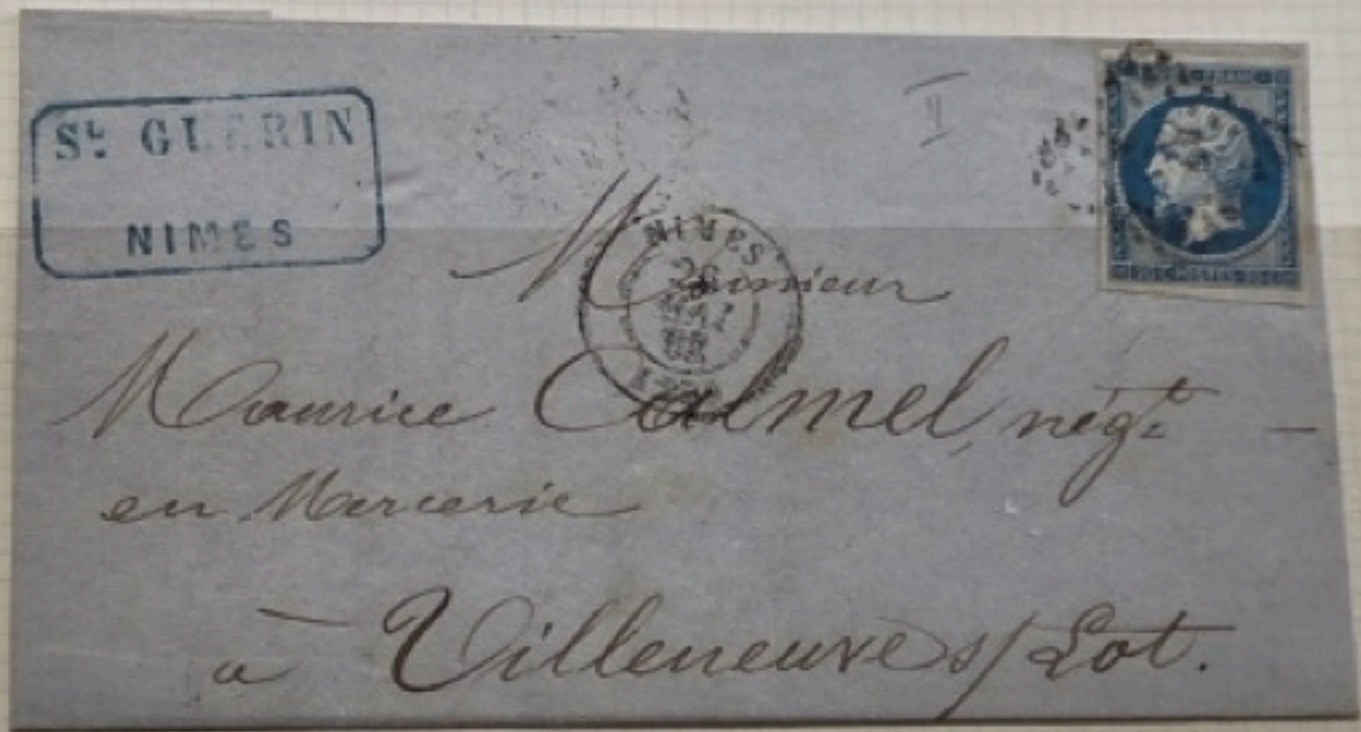 St GUERIN
NIMES
II
NIMES
MAI
Monsieur
Maurice Calmel, négt
en Mercerie
à Villeneuve s/ Lot.